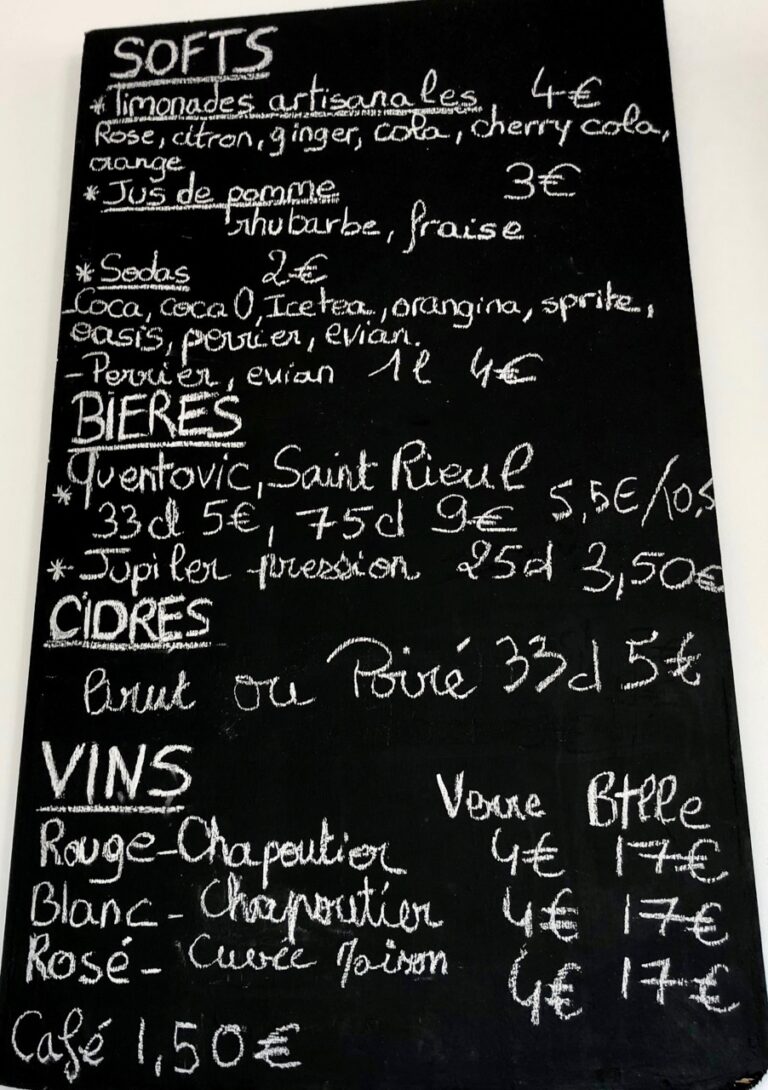 SOFTS
* Limonades artisanales 4€
Rose, citron, ginger, cola, cherry cola,
orange
* Jus de pomme 3€
rhubarbe, fraise
* Sodas 2€
- Coca, coca 0, Icetea, orangina, sprite,
oasis, perrier, evian.
- Perrier, evian 1l 4€
BIERES
* Quentovic, Saint Rieul
33cl 5€, 75cl 9€ 5,5€/0,5
* Jupiler pression 25cl 3,50€
CIDRES
Brut ou Poiré 33cl 5€
VINS
Verre Btlle
Rouge - Chapoutier 4€ 17€
Blanc - Chapoutier 4€ 17€
Rosé - Cuvée Maison 4€ 17€
Café 1,50€